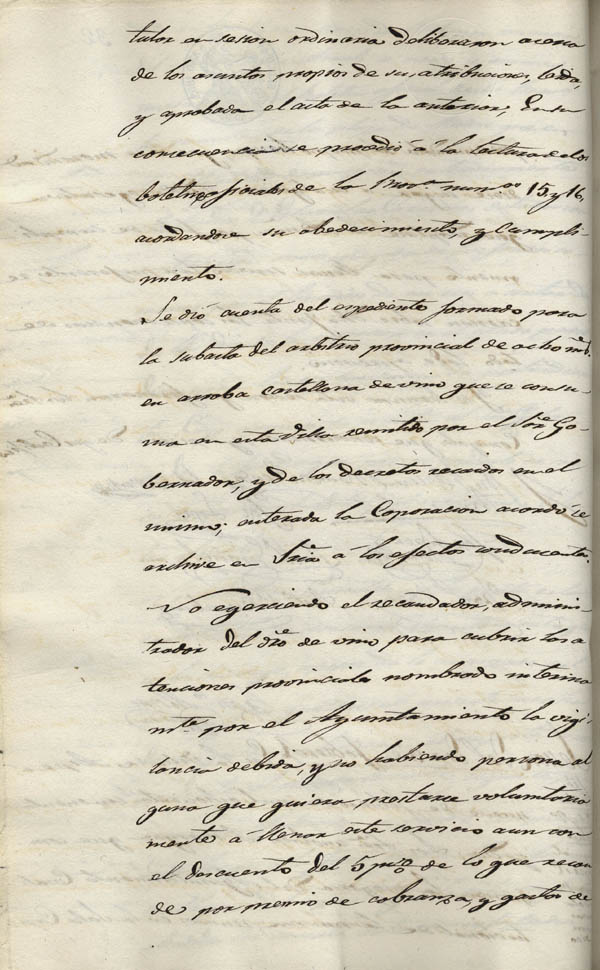 tular en sesion ordinaria deliberaron acerca
de los asuntos propios de sus atribuciones, leida,
y aprobada el acta de la anterior, En su
consecuencia se procedió á la lectura de los
boletines oficiales de la Prov.ª num.os 15 y 16,
acordandose su obedecimiento, y Cumpli-
miento.
Se dió cuenta del expediente formado para
la subasta del arbitrio provincial de ocho mrs.
en arroba castellana de vino que se consu-
ma en esta villa remitido por el Sor. Go-
bernador, y de los decretos recaidos en el
mismo; enterada la Coporacion acordó se
archive en Sria. á los efectos conducentes.
No egerciendo el recaudador, adminis-
trador del dro. de vino para cubrir las a
tenciones provinciales nombrado interina
mte. por el Ayuntamiento la vigi
lancia debida, y no habiendo persona al
guna que quiera prestarse voluntaria
mente á llenar este servicio aun con
el descuento del 5 p% de lo que recau
de por premio de cobranza, y gastos de